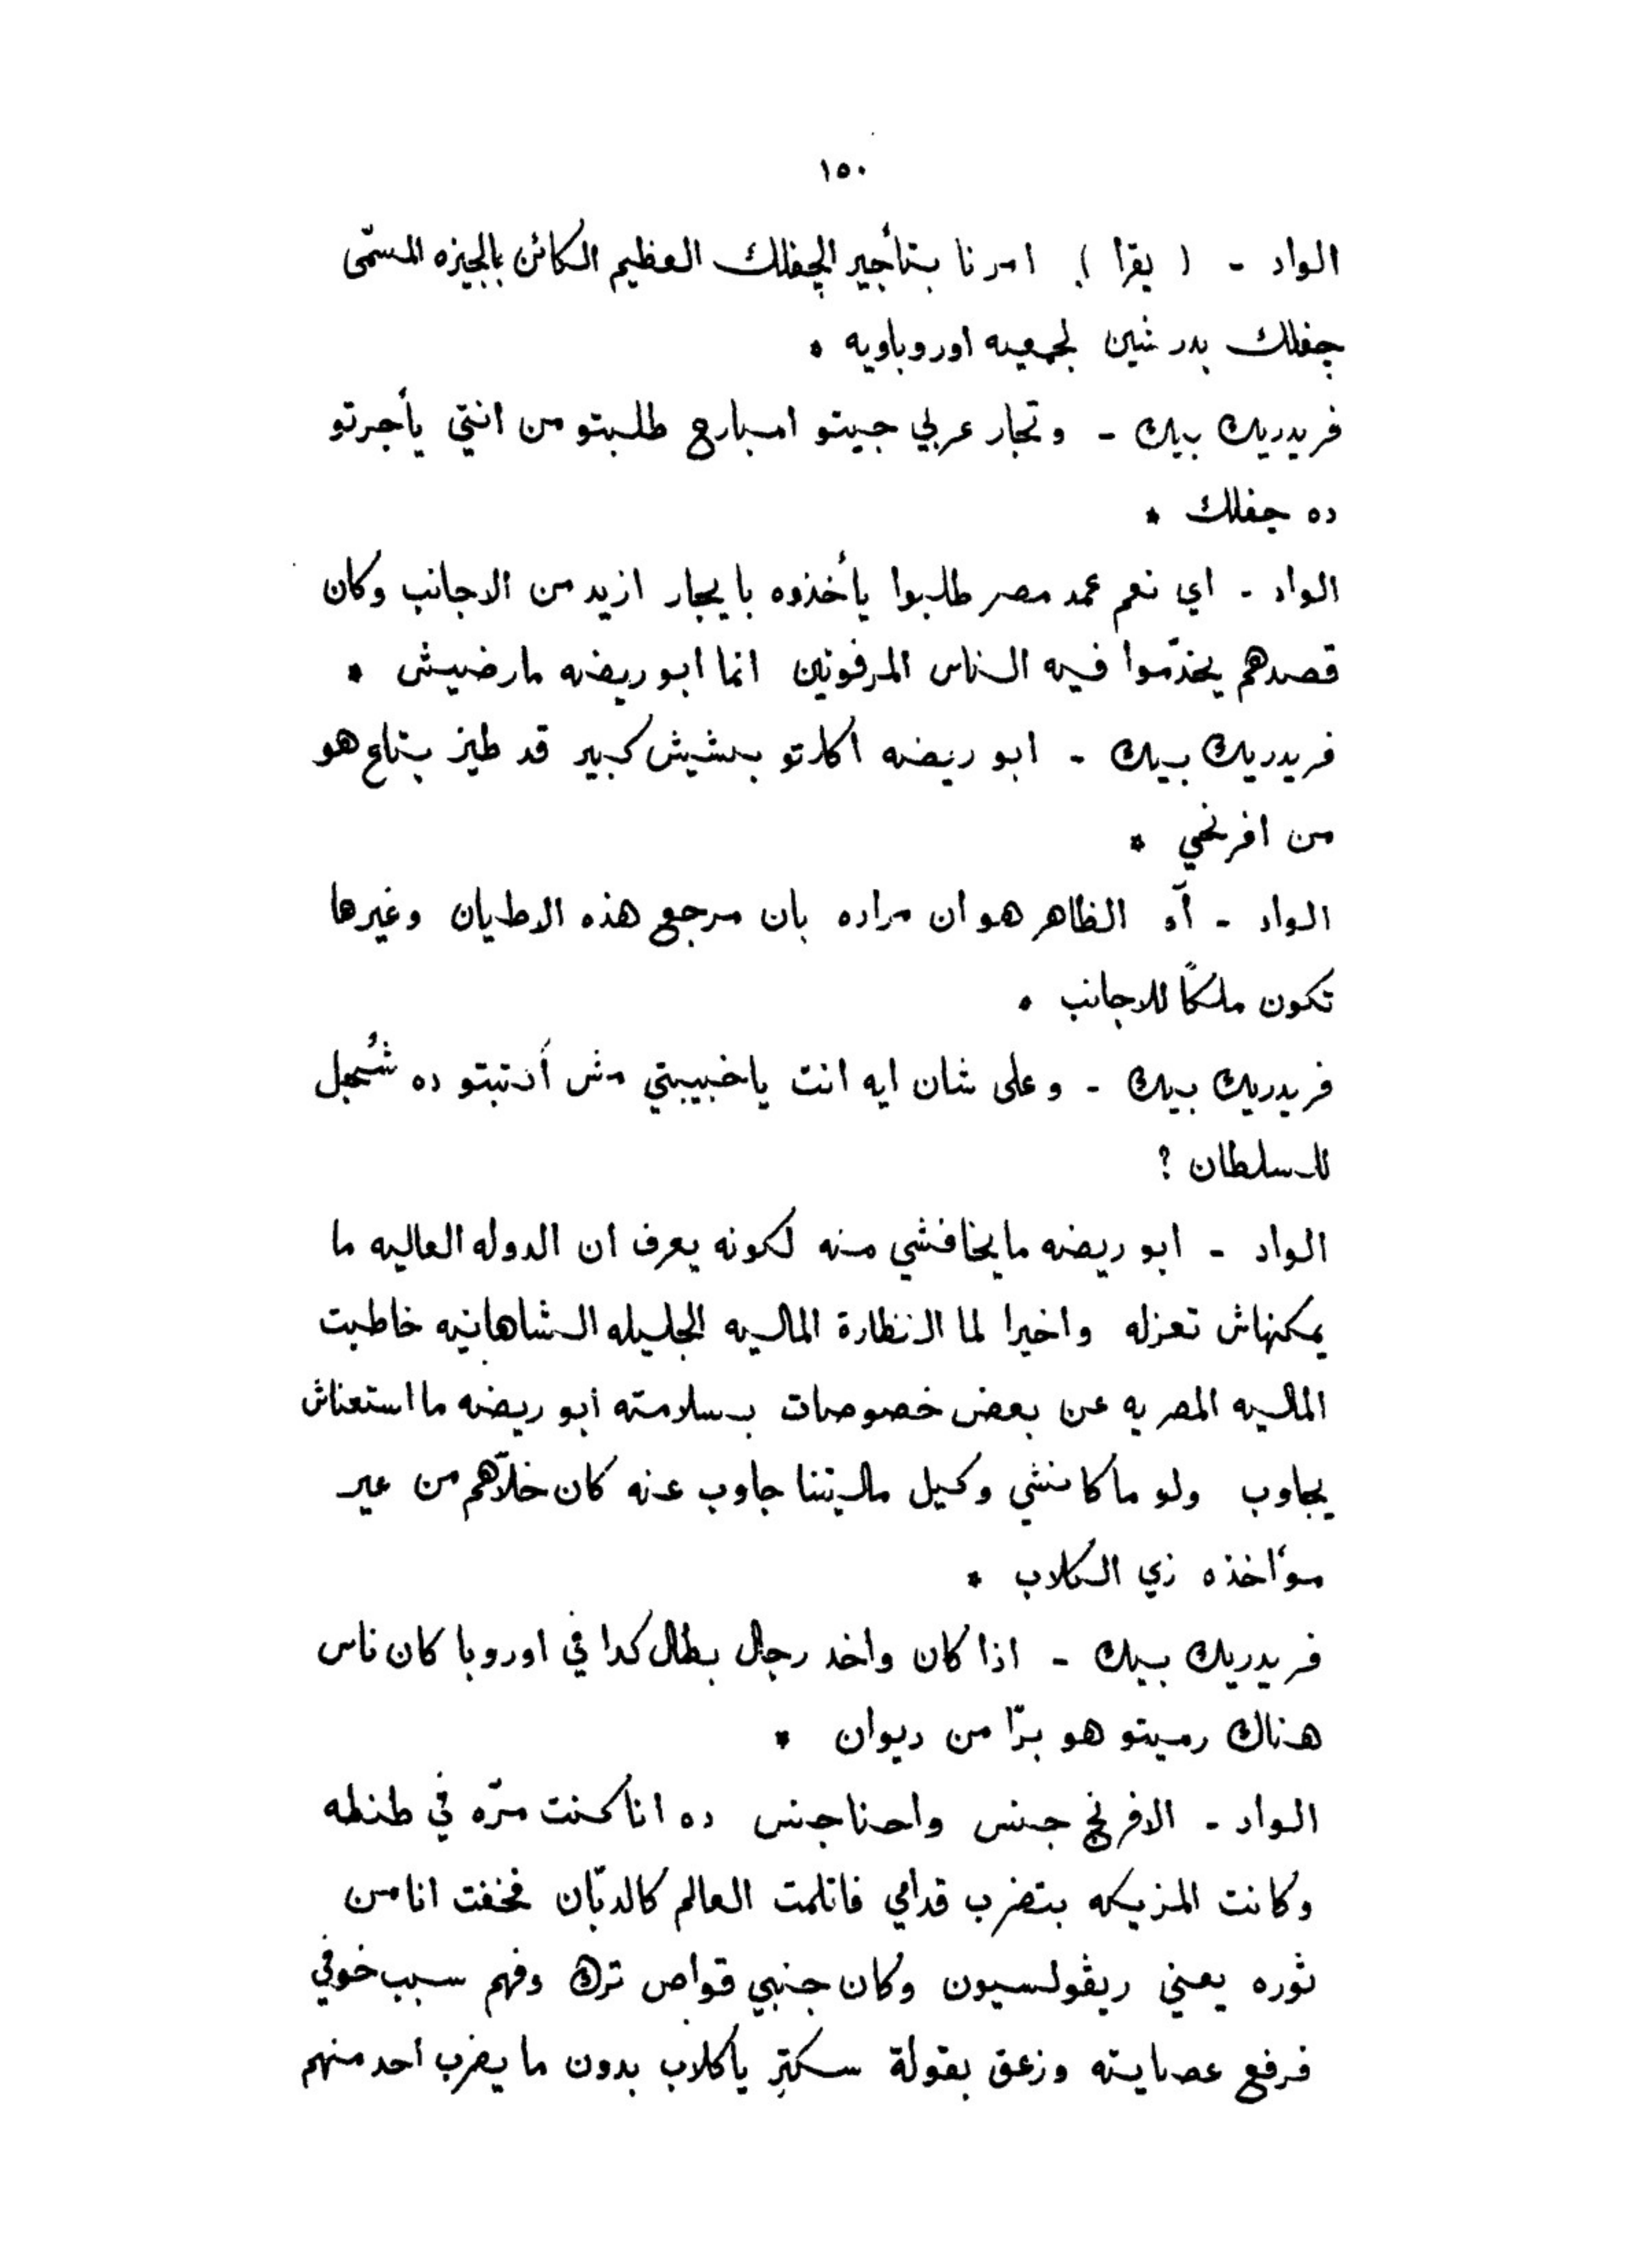 ١٥٠
الواد - ( يقرا ) امرنا بتأجير الچفلك العظيم الكائن بالجيزه المسمّى
چفلك بدرشين لجمعيه اوروباويه *
فريدريك بيك - وتجار عربي جيتو امبارح طلبتو من انتي يأجرتو
ده جفلك *
الواد - اي نعم عمد مصر طلبوا يأخذوه بايجار ازيد من الاجانب وكان
قصدهم يخدّموا فيه الناس المرفوتين انما ابو ريضه مارضيش *
فريدريك بيك - ابو ريضه اكلتو بخشيش كبير قد طيز بتاع هو
من افرنجي *
الواد - آه الظاهر هو ان مراده بان مرجع هذه الاطيان وغيرها
تكون ملكاً للاجانب *
فريدريك بيك - وعلى شان ايه انت ياخبيبتي مش أكتبتو ده شُجل
للسلطان ؟
الواد - ابو ريضه مايخافشي منه لكونه يعرف ان الدوله العاليه ما
يمكنهاش تعزله واخيرا لما النظارة الماليه الجليله الشاهانيه خاطبت
الماليه المصريه عن بعض خصوصات بسلامته ابو ريضه ما استعناش
يجاوب ولو ماكانشي وكيل ماليتنا جاوب عنه كان خلّاهم من غير
مؤاخذه زي الكلاب *
فريدريك بيك - اذا كان واخد رجال بطال كدا في اوروبا كان ناس
هناك رميتو هو برّا من ديوان *
الواد - الافرنج جنس واحنا جنس ده انا كنت مرّه في طنطه
وكانت المزيكه بتضرب قدامي فاتلمت العالم كالدبّان فخفت انا من
ثوره يعني ريڤولسيون وكان جنبي قواص ترك وفهم سبب خوفي
فرفع عصايته وزعق بقولة سكتر ياكلاب بدون ما يضرب احد منهم